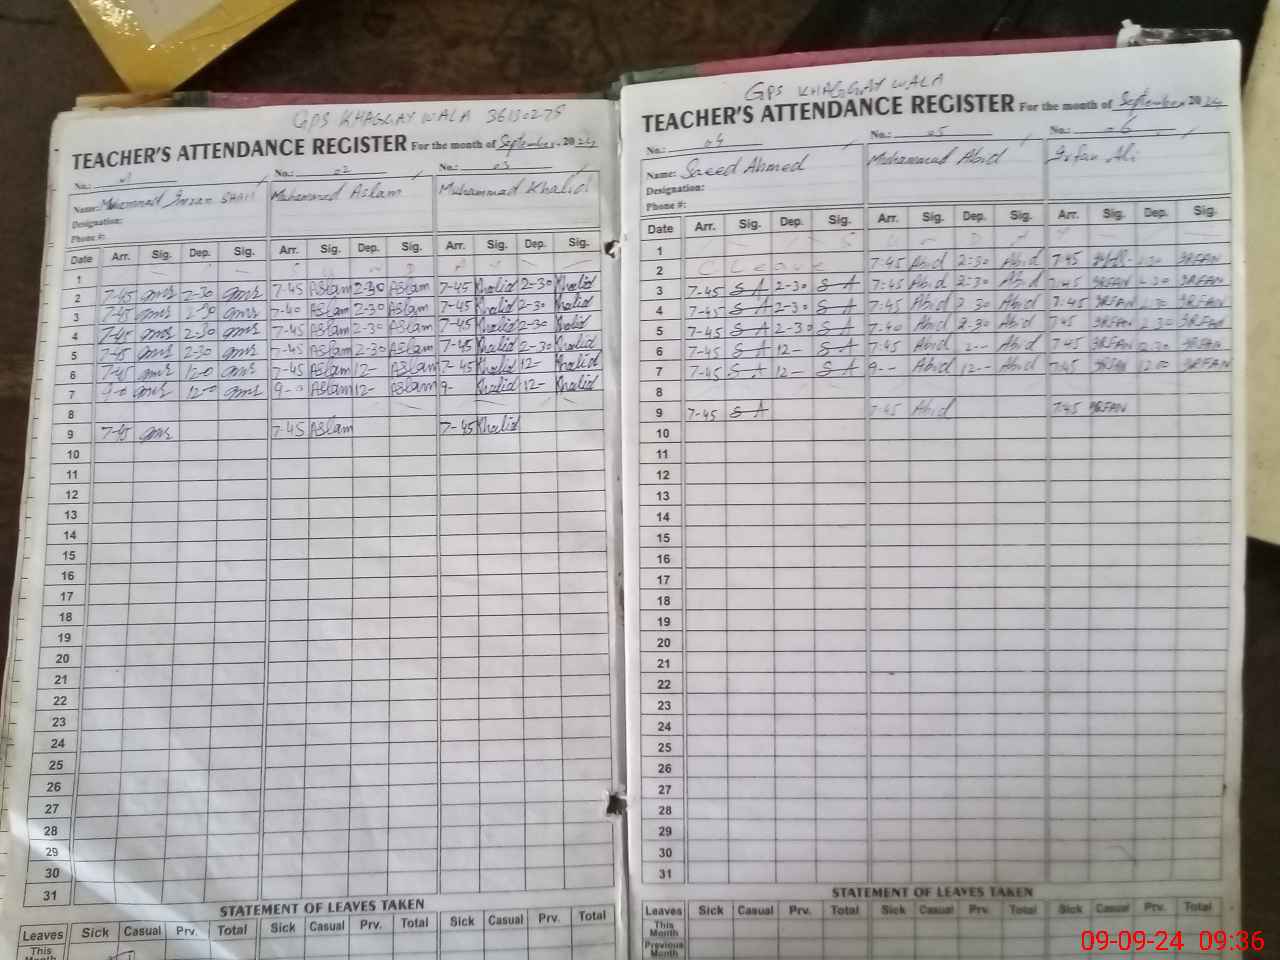 GPS KHAGGAY WALA 36130275
TEACHER'S ATTENDANCE REGISTER For the month of September 2024
No.: No.: 02 No.: 03
Name: Muhammad Imran SHAH Muhammad Aslam Muhammad Khalid
Designation:
Phone #:
Date Arr. Sig. Dep. Sig. Arr. Sig. Dep. Sig. Arr. Sig. Dep. Sig.
1
2 7-45 2-30 7-45 Aslam 2-30 Aslam 7-45 Khalid 2-30 Khalid
3 7-45 2-30 7-40 Aslam 2-30 Aslam 7-45 Khalid 2-30 Khalid
4 7-45 2-30 7-45 Aslam 2-30 Aslam 7-45 Khalid 2-30 Khalid
5 7-45 2-30 7-45 Aslam 2-30 Aslam 7-45 Khalid 2-30 Khalid
6 7-45 12-0 7-45 Aslam 12- Aslam 7-45 Khalid 12- Khalid
7 9-0 12-0 9-0 Aslam 12- Aslam 9- Khalid 12- Khalid
8
9 7-45 7-45 Aslam 7-45 Khalid
10
11
12
13
14
15
16
17
18
19
20
21
22
23
24
25
26
27
28
29
30
31
STATEMENT OF LEAVES TAKEN
Leaves Sick Casual Prv. Total Sick Casual Prv. Total Sick Casual Prv. Total
This Month
GPS KHAGGAY WALA
TEACHER'S ATTENDANCE REGISTER For the month of September 2024
No.: 04 No.: 05 No.: 06
Name: Saeed Ahmed Muhammad Abid Irfan Ali
Designation:
Phone #:
Date Arr. Sig. Dep. Sig. Arr. Sig. Dep. Sig. Arr. Sig. Dep. Sig.
1
2 C Leave 7:45 Abid 2:30 Abid 7:45 2:30 IRFAN
3 7-45 S A 2-30 S A 7:45 Abid 2:30 Abid 7:45 IRFAN 2:30 IRFAN
4 7-45 S A 2-30 S A 7:45 Abid 2 30 Abid 7:45 IRFAN 2:30 IRFAN
5 7-45 S A 2-30 S A 7:40 Abid 2-30 Abid 7:45 IRFAN 2:30 IRFAN
6 7-45 S A 12- S A 7:45 Abid Abid 7:45 IRFAN IRFAN
7 7-45 S A 12- S A 9-- Abid 12-- Abid 7:45 IRFAN 12:00 IRFAN
8
9 7-45 S A 7-45 Abid 7:45 IRFAN
10
11
12
13
14
15
16
17
18
19
20
21
22
23
24
25
26
27
28
29
30
31
STATEMENT OF LEAVES TAKEN
Leaves Sick Casual Prv. Total Sick Casual Prv. Total Sick Casual Prv. Total
This Month
Previous Month
09-09-24 09:36